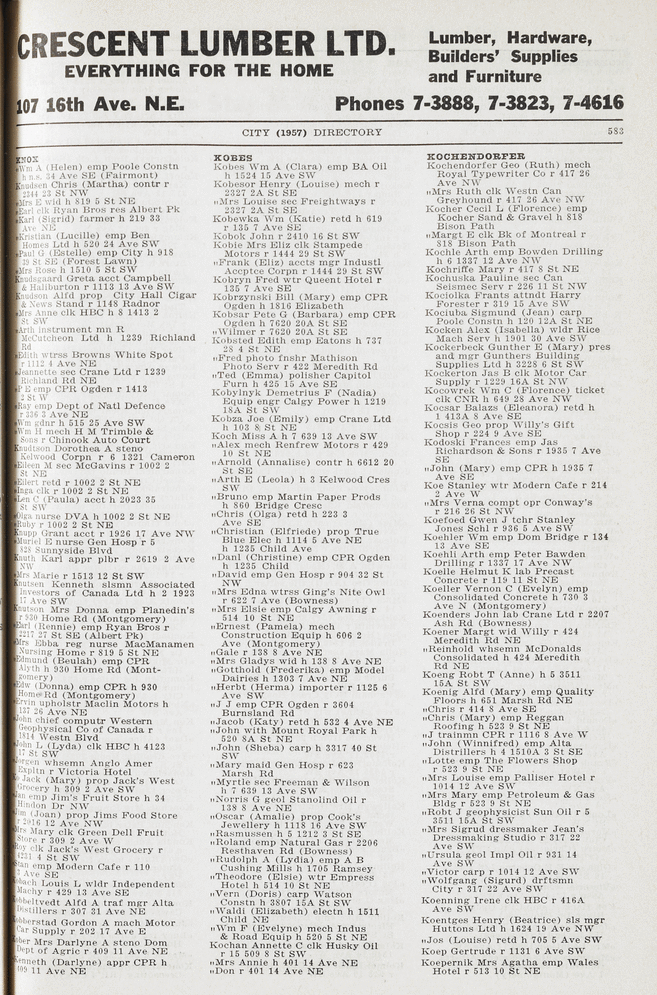 CRESCENT LUMBER LTD.
EVERYTHING FOR THE HOME
Lumber, Hardware,
Builders' Supplies
and Furniture
107 16th Ave. N.E.
Phones 7-3888, 7-3823, 7-4616
CITY (1957) DIRECTORY
583
KNOX
"Wm A (Helen) emp Poole Constn
h n.s. 34 Ave SE (Fairmont)
Knudsen Chris (Martha) contr r
2244 23 St NW
"Mrs E wid h 819 5 St NE
"Earl clk Ryan Bros res Albert Pk
"Karl (Sigrid) farmer h 219 33
Ave NE
"Kristian (Lucille) emp Ben
Homes Ltd h 520 24 Ave SW
"Paul G (Estelle) emp City h 918
39 St SE (Forest Lawn)
"Mrs Rose h 1510 5 St SW
Knudsgaard Greta acct Campbell
& Haliburton r 1113 13 Ave SW
Knudson Alfd prop City Hall Cigar
& News Stand r 1148 Radnor
"Mrs Anne clk HBC h 8 1413 2
St SW
"Arth instrument mn R
McCutcheon Ltd h 1239 Richland
Rd
"Edith wtrss Browns White Spot
r 1112 4 Ave NE
"Jeannette sec Crane Ltd r 1239
Richland Rd NE
"F E emp CPR Ogden r 1413
2 St W
"Ray emp Dept of Natl Defence
r 336 3 Ave NE
"Wm gdnr h 515 25 Ave SW
"Wm H mech H M Trimble &
Sons r Chinook Auto Court
Knudtson Dorothea A steno
Kelwood Corpn r 6 1321 Cameron
"Eileen M sec McGavins r 1002 2
St NE
"Eilert retd r 1002 2 St NE
"Inga clk r 1002 2 St NE
"Len C (Paula) acct h 2023 35
St SW
"Olga nurse DVA h 1002 2 St NE
"Ruby r 1002 2 St NE
Knupp Grant acct r 1926 17 Ave NW
"Muriel E nurse Gen Hosp r 5
828 Sunnyside Blvd
Knuth Karl appr plbr r 2619 2 Ave
NW
"Mrs Marie r 1513 12 St SW
Knutsen Kenneth slsmn Associated
Investors of Canada Ltd h 2 1923
17 Ave SW
Knutson Mrs Donna emp Planedin's
r 930 Home Rd (Montgomery)
"Earl (Rennie) emp Ryan Bros r
2217 27 St SE (Albert Pk)
"Mrs Ebba reg nurse MacManamen
Nursing Home r 819 5 St NE
"Edmund (Beulah) emp CPR
Alyth h 930 Home Rd (Mont-
gomery)
"Edw (Donna) emp CPR h 930
Home Rd (Montgomery)
"Ervin upholstr Maclin Motors h
137 26 Ave NE
"John chief computr Western
Geophysical Co of Canada r
1814 Westn Blvd
"John L (Lyda) clk HBC h 4123
17 St SW
"Jorgen whsemn Anglo Amer
Expltn r Victoria Hotel
Jack (Mary) prop Jack's West
Grocery h 309 2 Ave SW
emp Jim's Fruit Store h 34
Hindon Dr NW
(Joan) prop Jims Food Store
r 2016 12 Ave NW
Mrs Mary clk Green Dell Fruit
Store r 309 2 Ave W
Roy clk Jack's West Grocery r
4231 4 St SW
emp Modern Cafe r 110
Ave SE
Louis L wldr Independent
Machy r 429 13 Ave SE
Alfd A traf mgr Alta
Distillers r 307 31 Ave NE
Gordon A mach Motor
Car Supply r 202 17 Ave E
Mrs Darlyne A steno Dom
Dept of Agric r 409 11 Ave NE
Kenneth (Darlyne) appr CPR h
409 11 Ave NE
KOBES
Kobes Wm A (Clara) emp BA Oil
h 1524 15 Ave SW
Kobesor Henry (Louise) mech r
2327 2A St SE
"Mrs Louise sec Freightways r
2327 2A St SE
Kobewka Wm (Katie) retd h 619
r 135 7 Ave SE
Kobok John r 2410 16 St SW
Kobie Mrs Eliz clk Stampede
Motors r 1444 29 St SW
"Frank (Eliz) accts mgr Industl
Accptce Corpn r 1444 29 St SW
Kobryn Fred wtr Queent Hotel r
135 7 Ave SE
Kobrzynski Bill (Mary) emp CPR
Ogden h 1816 Elizabeth
Kobsar Pete G (Barbara) emp CPR
Ogden h 7620 20A St SE
"Wilmer r 7620 20A St SE
Kobsted Edith emp Eatons h 737
28 4 St NE
"Fred photo fnshr Mathison
Photo Serv r 422 Meredith Rd
"Ted (Emma) polisher Capitol
Furn h 425 15 Ave SE
Kobylnyk Demetrius F (Nadia)
Equip engr Calgy Power h 1219
18A St SW
Kobza Joe (Emily) emp Crane Ltd
h 103 8 St NE
Koch Miss A h 7 639 13 Ave SW
"Alex mech Renfrew Motors r 429
10 St NE
"Arnold (Annalise) contr h 6612 20
St SE
"Arth E (Leola) h 3 Kelwood Cres
SW
"Bruno emp Martin Paper Prods
h 860 Bridge Cresc
"Chris (Olga) retd h 223 3
Ave SE
"Christian (Elfriede) prop True
Blue Elec h 1114 5 Ave NE
h 1235 Child Ave
"Danl (Christine) emp CPR Ogden
h 1235 Child
"David emp Gen Hosp r 904 32 St
NW
"Mrs Edna wtrss Ging's Nite Owl
r 622 7 Ave (Bowness)
"Mrs Elsie emp Calgy Awning r
514 10 St NE
"Ernest (Pamela) mech
Construction Equip h 606 2
Ave (Montgomery)
"Gale r 138 8 Ave NE
"Mrs Gladys wid h 138 8 Ave NE
"Gotthold (Frederika) emp Model
Dairies h 1303 7 Ave NE
"Herbt (Herma) importer r 1125 6
Ave SW
"J J emp CPR Ogden r 3604
Burnsland Rd
"Jacob (Katy) retd h 532 4 Ave NE
"John with Mount Royal Park h
520 8A St NE
"John (Sheba) carp h 3317 40 St
SW
"Mary maid Gen Hosp r 623
Marsh Rd
"Myrtle sec Freeman & Wilson
h 7 639 13 Ave SW
"Norris G geol Stanolind Oil r
138 8 Ave NE
"Oscar (Amalie) prop Cook's
Jewellery h 1118 16 Ave SW
"Rasmussen h 5 1212 3 St SE
"Roland emp Natural Gas r 2206
Resthaven Rd (Bowness)
"Rudolph A (Lydia) emp A B
Cushing Mills h 1705 Ramsey
"Theodore (Elsie) wtr Empress
Hotel h 514 10 St NE
"Vern (Doris) carp Watson
Constn h 3807 15A St SW
"Waldi (Elizabeth) electn h 1511
Child NE
"Wm F (Evelyne) mech Indus
& Road Equip h 520 5 St NE
Kochan Annette C clk Husky Oil
r 15 509 8 St SW
"Mrs Annie h 401 14 Ave NE
"Don r 401 14 Ave NE
KOCHENDORFER
Kochendorfer Geo (Ruth) mech
Royal Typewriter Co r 417 26
Ave NW
"Mrs Ruth clk Westn Can
Greyhound r 417 26 Ave NW
Kocher Cecil L (Florence) emp
Kocher Sand & Gravel h 818
Bison Path
"Margt E clk Bk of Montreal r
818 Bison Path
Kochle Arth emp Bowden Drilling
h 6 1337 12 Ave NW
Kochriffe Mary r 417 8 St NE
Kochuska Pauline sec Can
Seismec Serv r 226 11 St NW
Kociolka Frants attndt Harry
Forester r 319 15 Ave SW
Kociuba Sigmund (Jean) carp
Poole Constn h 120 12A St NE
Kocken Alex (Isabella) wldr Rice
Mach Serv h 1901 30 Ave SW
Kockerbeck Gunther E (Mary) pres
and mgr Gunthers Building
Supplies Ltd h 3228 6 St SW
Kockerton Jas B clk Motor Car
Supply r 1229 16A St NW
Kocowrek Wm C (Florence) ticket
clk CNR h 649 28 Ave NW
Kocsar Balazs (Eleanora) retd h
1 413A 8 Ave SE
Kocsis Geo prop Willy's Gift
Shop r 224 9 Ave SE
Kodoski Frances emp Jas
Richardson & Sons r 1935 7 Ave
SE
"John (Mary) emp CPR h 1935 7
Ave SE
Koe Stanley wtr Modern Cafe r 214
2 Ave W
"Mrs Verna compt opr Conway's
r 216 26 St NW
Koefoed Gwen J tchr Stanley
Jones Schl r 936 5 Ave SW
Koehler Wm emp Dom Bridge r 134
13 Ave SE
Koehli Arth emp Peter Bawden
Drilling r 1337 17 Ave NW
Koelle Helmut K lab Precast
Concrete r 119 11 St NE
Koeller Vernon C (Evelyn) emp
Consolidated Concrete h 730 3
Ave N (Montgomery)
Koenders John lab Crane Ltd r 2207
Ash Rd (Bowness)
Koener Margt wid Willy r 424
Meredith Rd NE
"Reinhold whsemn McDonalds
Consolidated h 424 Meredith
Rd NE
Koeng Robt T (Anne) h 5 3511
15A St SW
Koenig Alfd (Mary) emp Quality
Floors h 651 Marsh Rd NE
"Chris r 414 8 Ave SE
"Chris (Mary) emp Reggan
Roofing h 523 9 St NE
"J trainmn CPR r 1116 8 Ave W
"John (Winnifred) emp Alta
Distillers h 4 1510A 3 St SE
"Lotte emp The Flowers Shop
r 523 9 St NE
"Mrs Louise emp Palliser Hotel r
1014 12 Ave SW
"Mrs Mary emp Petroleum & Gas
Bldg r 523 9 St NE
"Robt J geophysicst Sun Oil r 5
3511 15A St SW
"Mrs Sigrud dressmaker Jean's
Dressmaking Studio r 317 22
Ave SW
"Ursula geol Impl Oil r 931 14
Ave SW
"Victor carp r 1014 12 Ave SW
"Wolfgang (Sigurd) drftsmn
City r 317 22 Ave SW
Koenning Irene clk HBC r 416A
Ave SW
Koentges Henry (Beatrice) sls mgr
Huttons Ltd h 1624 19 Ave NW
"Jos (Louise) retd h 705 5 Ave SW
Koep Gertrude r 1131 6 Ave SW
Koepernik Mrs Agatha emp Wales
Hotel r 513 10 St NE